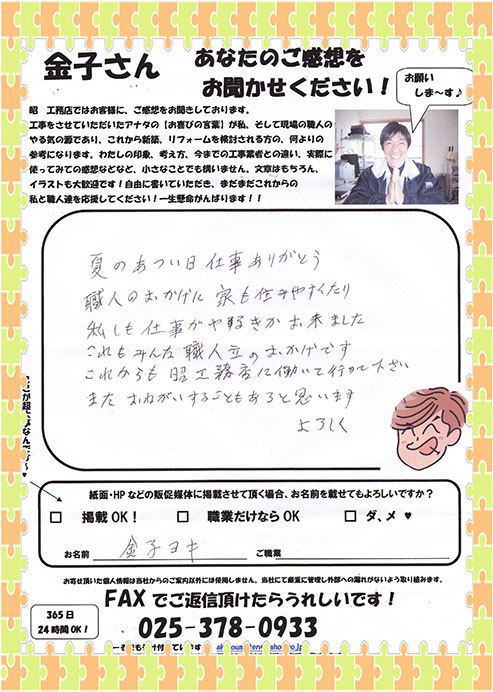 金子さん
あなたのご感想を
お聞かせください！
お願い
しま～す♪
昭　工務店ではお客様に、ご感想をお聞きしております。
工事をさせていただいたアナタの【お喜びの言葉】が私、そして現場の職人の
やる気の源であり、これから新築、リフォームを検討される方の、何よりの
参考になります。わたしの印象、考え方、今までの工事業者との違い、実際に
使ってみての感想などなど、小さなことでも構いません。文章はもちろん、
イラストも大歓迎です！自由に書いていただき、まだまだこれからの
私と職人達を応援してください！一生懸命がんばります！！
夏のあつい日仕事ありがとう
職人のおかげに家も住みやすくなり
私しも仕事がや好きがお来ました
これもみんな職人立のおかげです
これからも昭工務店に働いて行って下さい
また おねがいすることもあると思います
よろしく
紙面・HPなどの販促媒体に掲載させて頂く場合、お名前を載せてもよろしいですか？
□ 掲載OK！ □ 職業だけならOK □ ダ、メ ♥
お名前 金子ヨキ ご職業
お寄せ頂いた個人情報は当社からのご案内以外には使用しません。当社にて厳重に管理し外部への漏れがないよう取り組みます。
FAXでご返信頂けたらうれしいです！
365日
24時間OK！
025-378-0933